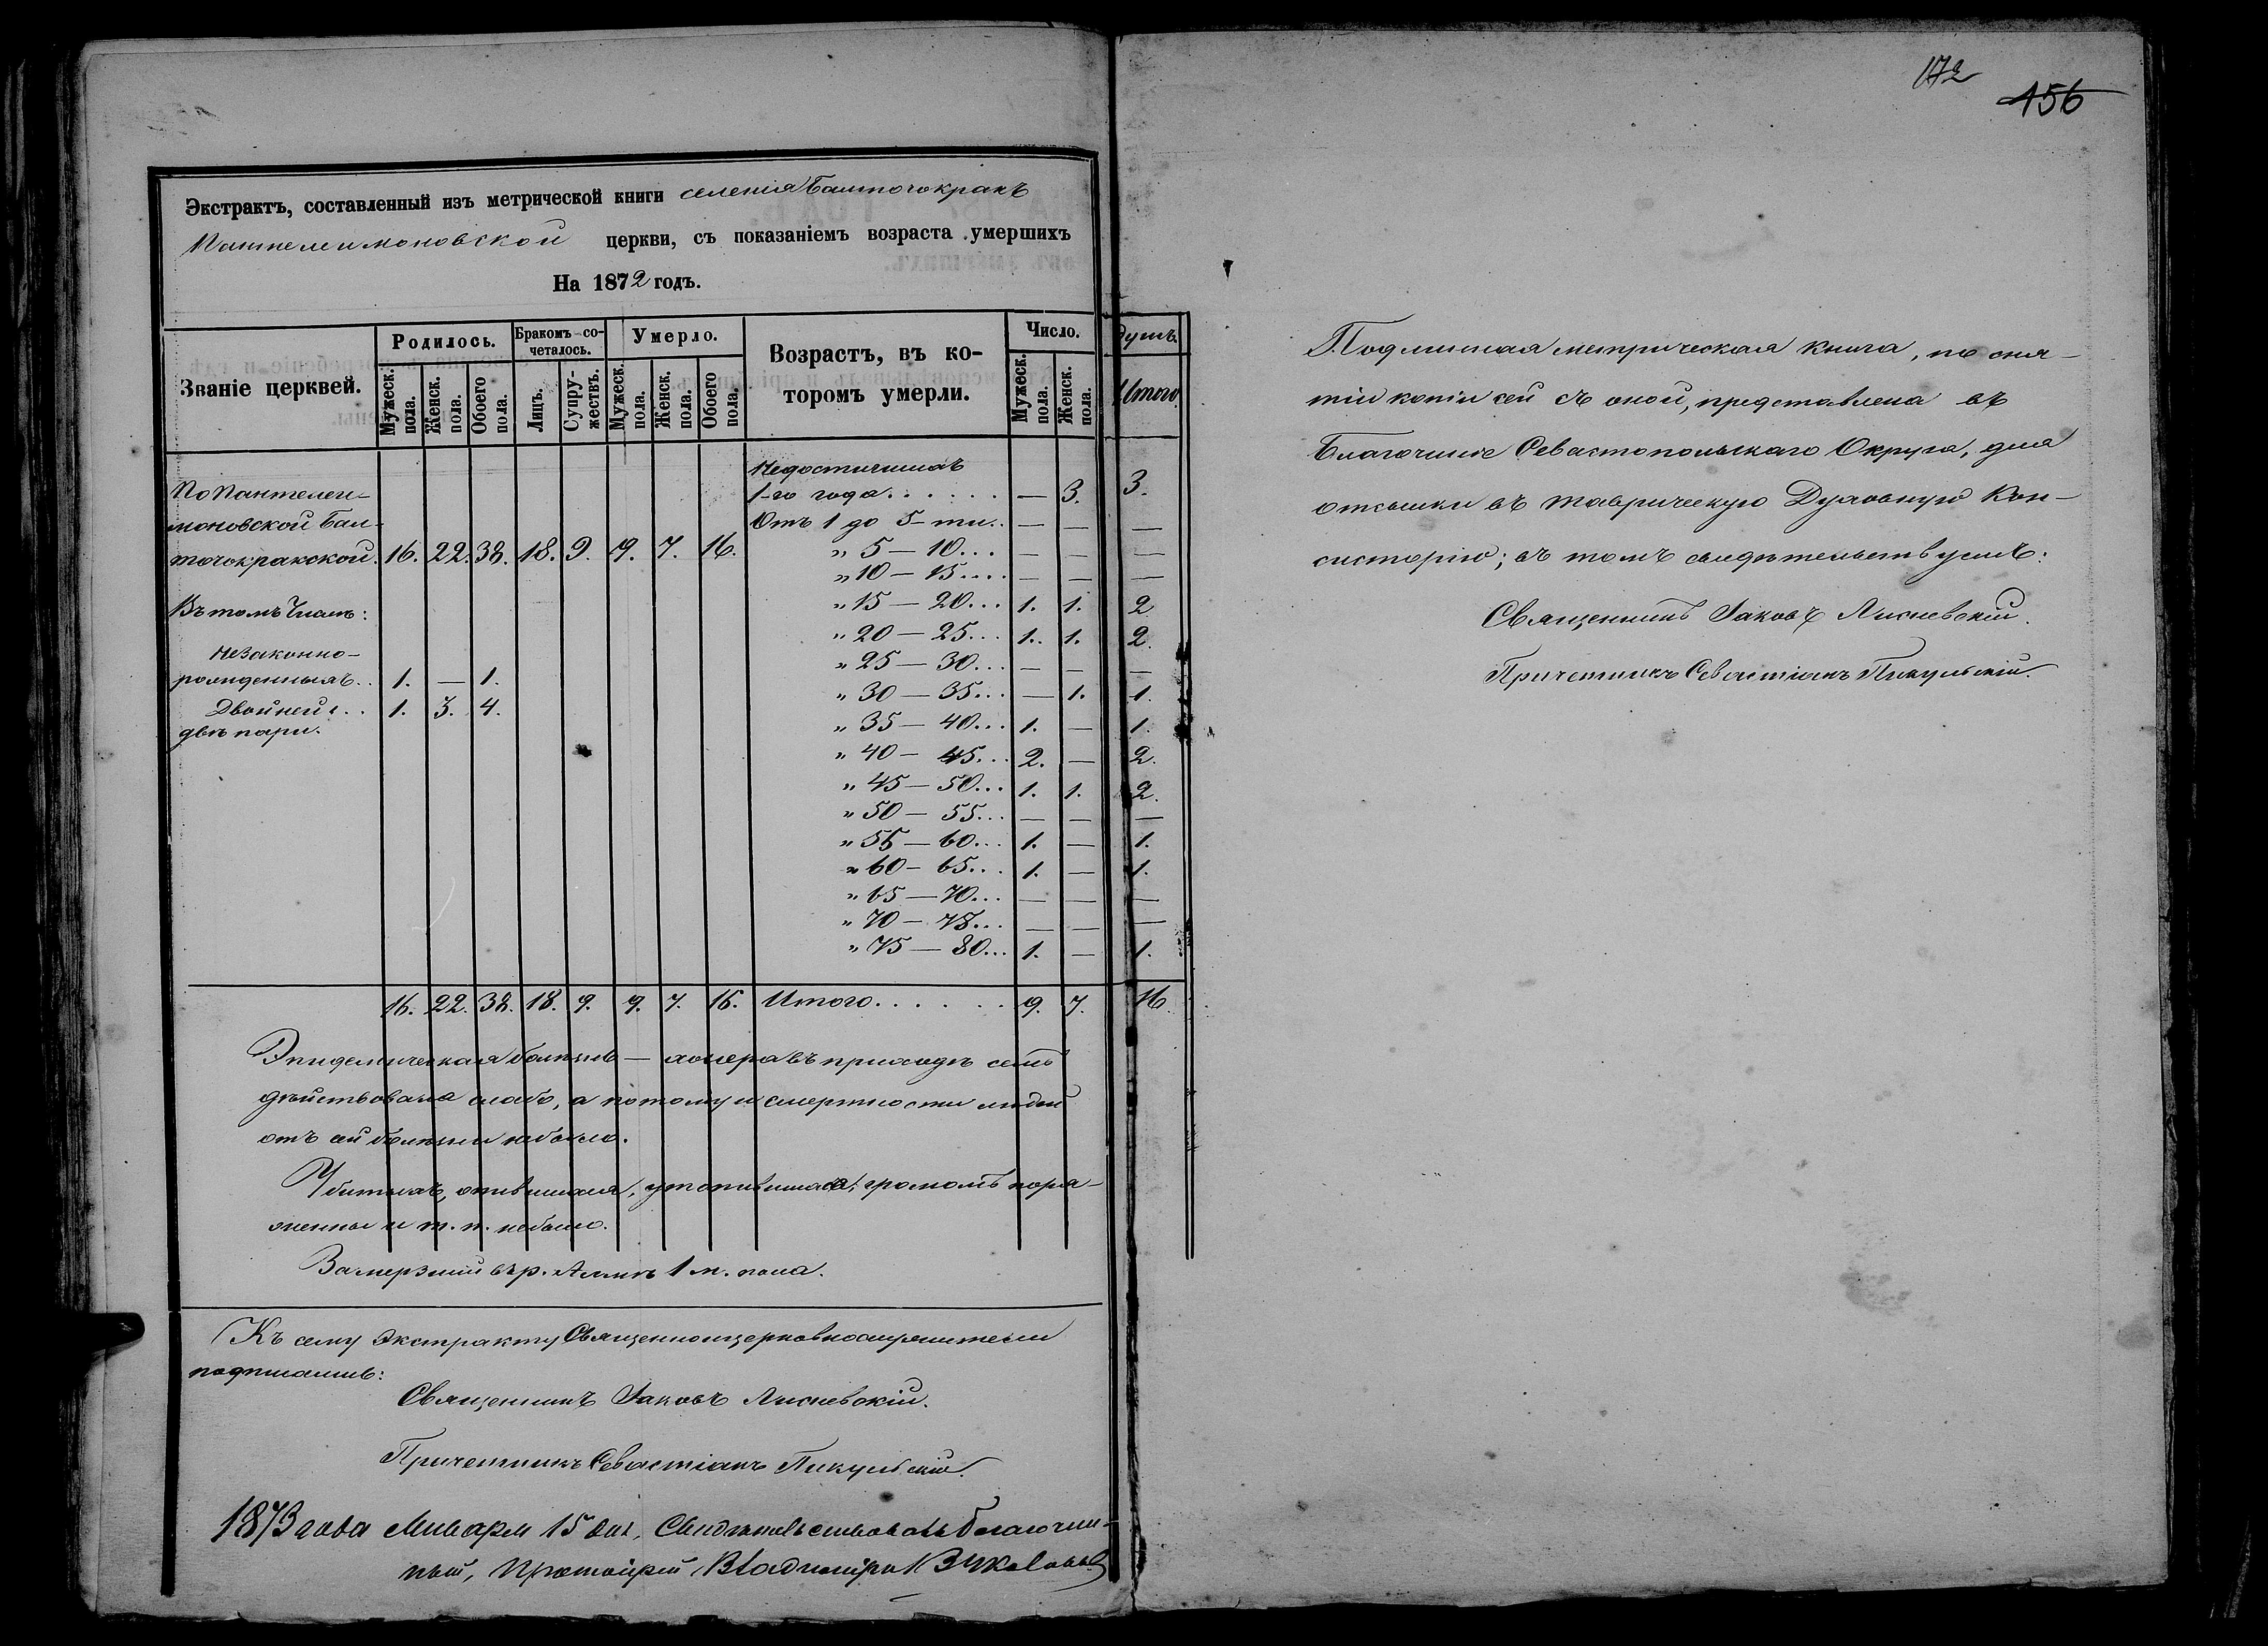 Экстрактъ, составленный изъ метрической книги селенія Балточокракъ
Пантелеимоновской церкви, съ показаніемъ возраста умершихъ
На 1872 годъ.
Званіе церквей.
Родилось.
Мужеск. пола.
Женск. пола.
Обоего пола.
Бракомъ сочеталось.
Лицъ.
Супружествъ.
Умерло.
Мужеск. пола.
Женск. пола.
Обоего пола.
Возрастъ, въ ко-
торомъ умерли.
Число. душъ.
Мужеск. пола.
Женск. пола.
Итого.
По Пантелеи-
моновской Бал-
точокракской. 16. 22. 38. 18. 9. 9. 7. 16.
Въ томъ числѣ:
Незаконно-
рожденныхъ.. 1. — 1.
Двойней:.. 1. 3. 4.
двѣ пары.
Недостигшихъ
1-го года...... — 3. 3.
Отъ 1 до 5-ти.. — — —
" 5 — 10... — — —
" 10 — 15.... — — —
" 15 — 20... 1. 1. 2
" 20 — 25... 1. 1. 2.
" 25 — 30... — — —
" 30 — 35... — 1. 1.
" 35 — 40... 1. — 1.
" 40 — 45... 2. — 2.
" 45 — 50... 1. 1. 2.
" 50 — 55... — — —
" 55 — 60... 1. — 1.
" 60 — 65... 1. — 1.
" 65 — 70... — — —
" 70 — 75... — — —
" 75 — 80... 1. — 1.
16. 22. 38. 18. 9. 9. 7. 16. Итого...... 9. 7. 16.
Эпидемическая болѣзнь — холера въ приходѣ семъ
дѣйствовала слабо, а потому и смертности людей
отъ сей болѣзни небыло.
Убитыхъ, опившихся, утопившихся, громомъ пора-
женны и т. п. небыло.
Замерзшій въ р. Алмѣ 1 м. пола.
Къ сему Экстракту Священноцерковнослужители
подписались:
Священникъ Іаковъ Лисневскій.
Причетникъ Севастіанъ Пикульскій.
1873 года Января 15 дня. Свидѣтельствовалъ Благочин-
ный, Протоіерей Владиміръ
172
156
Подлинная метрическая книга, по сня-
тіи копіи сей съ оной, представлена въ
Благочиніе Севастопольскаго Округа, для
отсылки въ Таврическую Духовную Кон-
систорію; въ томъ свидѣтельствуемъ:
Священникъ Іаковъ Лисневскій.
Причетникъ Севастіанъ Пикульскій.